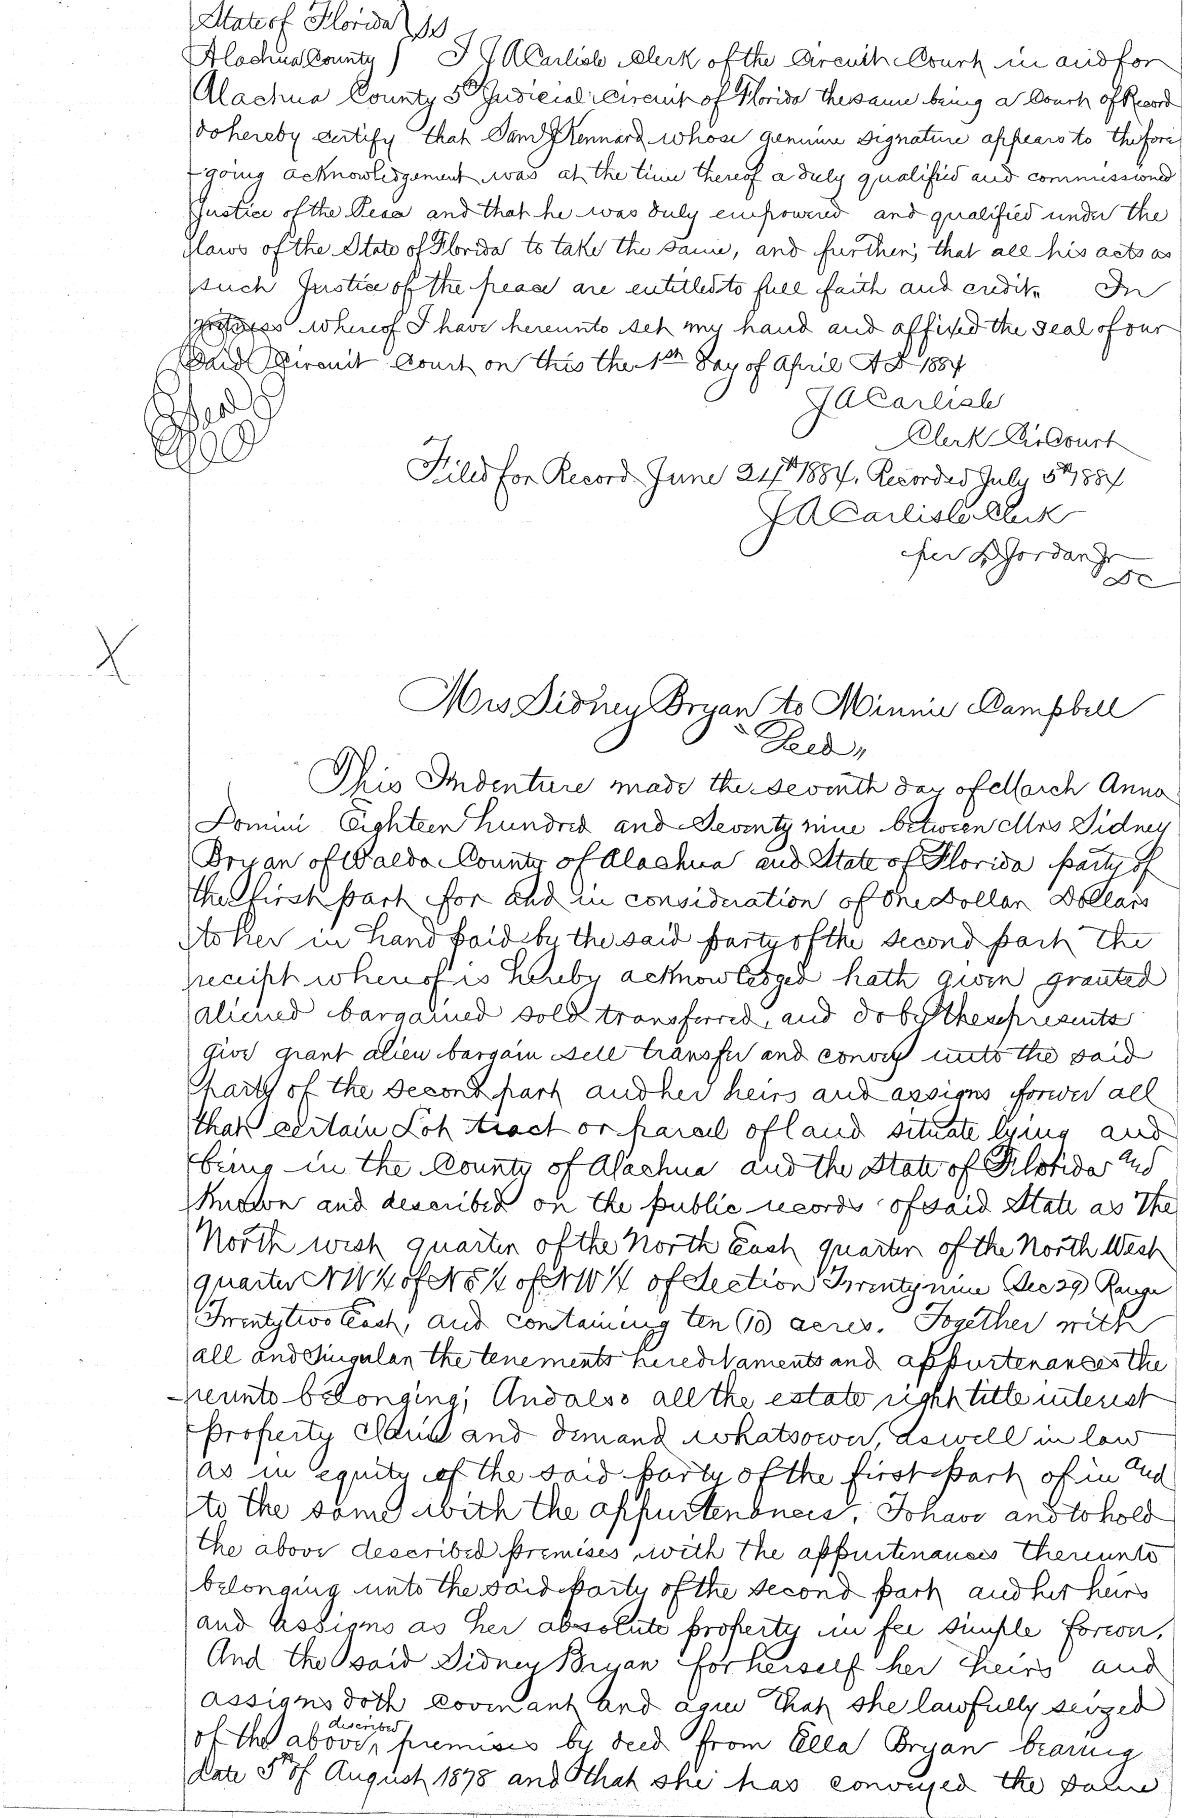 State of Florida } SS
Alachua County } I J A Carlisle Clerk of the Circuit Court in and for
Alachua County 5th Judicial circuit of Florida the same being a Court of Record
do hereby certify that Sam J Kennard whose genuine signature appears to the fore
-going acknowledgement was at the time thereof a duly qualified and commissioned
Justice of the Peace and that he was duly empowered and qualified under the
laws of the State of Florida to take the same, and further, that all his acts as
such Justice of the peace are entitled to full faith and credit. In
witness whereof I have hereunto set my hand and affixed the seal of our
Said Circuit Court on this the 1st day of April A D 1884
Seal
J A Carlisle
Clerk Cir Court
Filed for Record June 24th 1884. Recorded July 5th 1884
J A Carlisle Clerk
per Jordan Jr
DC
X
Mrs Sidney Bryan to Minnie Campbell
"Deed"
This Indenture made the seventh day of March Anna
Domini Eighteen hundred and Seventy nine between Mrs Sidney
Bryan of Waldo County of Alachua and State of Florida party of
the first part for and in consideration of One Dollar Dollars
to her in hand paid by the said party of the second part the
receipt whereof is hereby acknowledged hath given granted
aliened bargained sold transferred, and do by these presents
give grant alien bargain sell transfer and convey unto the said
party of the second part and her heirs and assigns forever all
that certain Lot tract or parcel of land situate lying and
being in the County of Alachua and the State of Florida and
Known and described on the public records of said State as The
North west quarter of the North East quarter of the North West
quarter NW 1/4 of NE 1/4 of NW 1/4 of Section Twenty nine (Sec 29) Range
Twenty two East, and containing ten (10) acres. Together with
all and singular the tenements hereditaments and appurtenances the
-reunto belonging; And also all the estate right title interest
property claim and demand whatsoever, as well in law
as in equity of the said party of the first part of in and
to the same with the appurtenances. To have and to hold
the above described premises with the appurtenances thereunto
belonging unto the said party of the second part and her heirs
and assigns as her absolute property in fee simple forever.
And the said Sidney Bryan for herself her heirs and
assigns doth covenant and agree that she lawfully seized
of the above described premises by deed from Ella Bryan bearing
date 5th of August 1878 and that she has conveyed the same